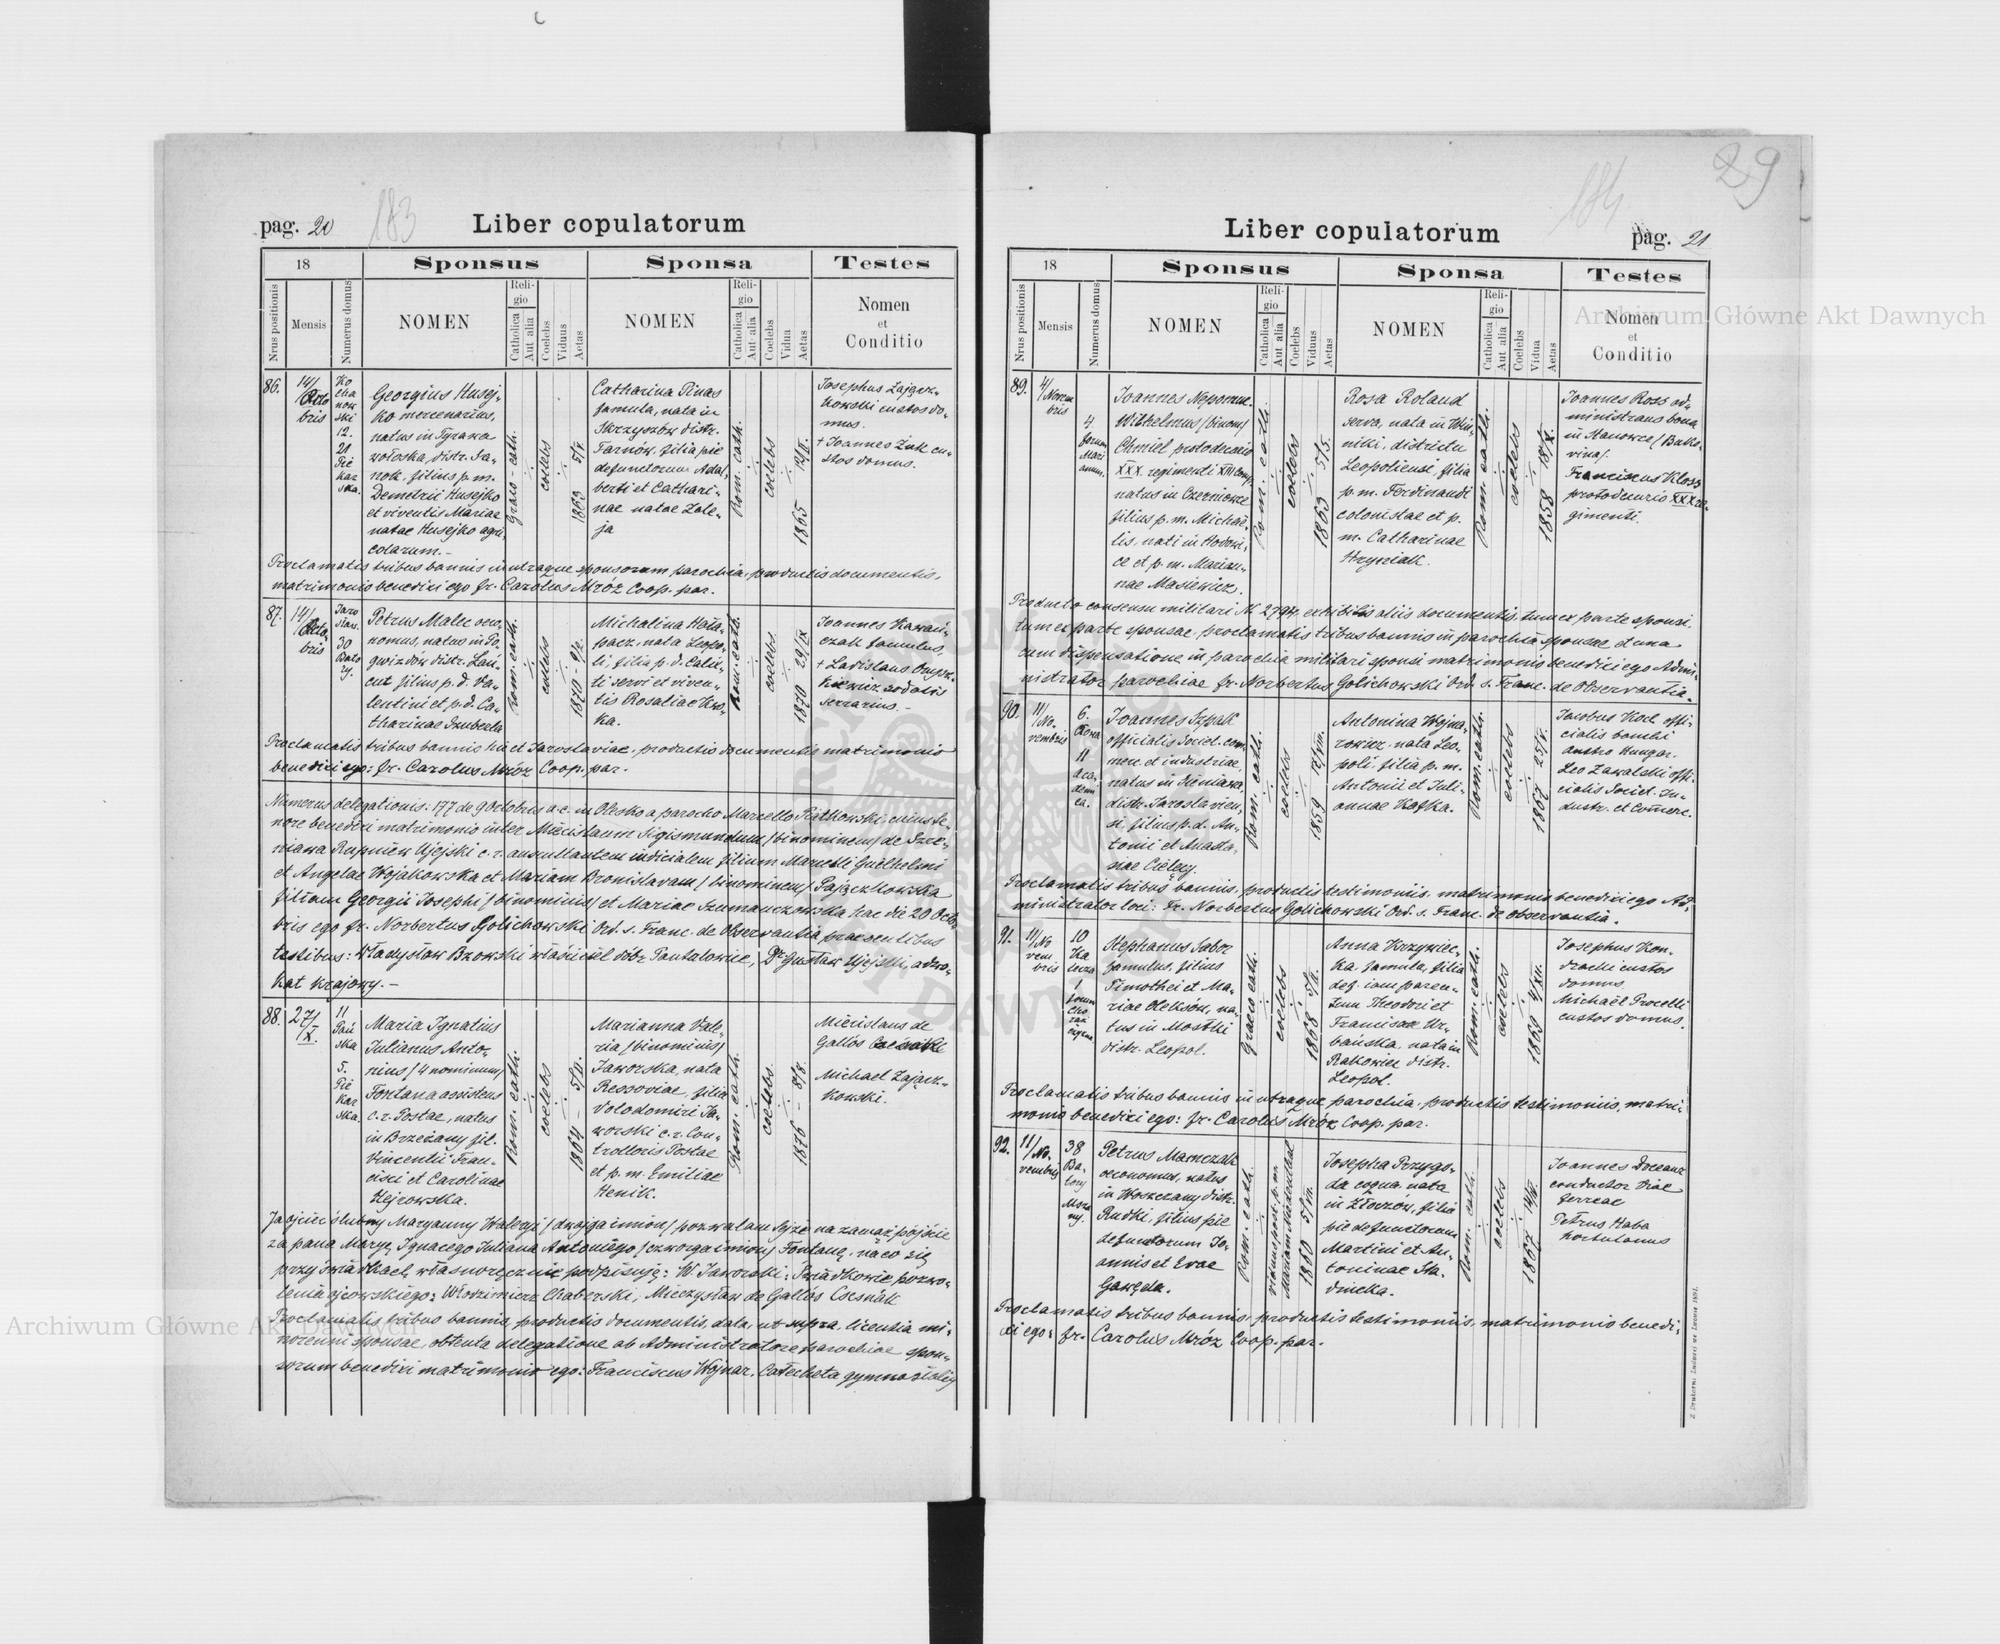 29
pag. 20
183
Liber copulatorum
18
Sponsus
Sponsa
Testes
Nrus positionis
Mensis
Numerus domus
NOMEN
Religio
Catholica
Aut alia
Coelebs
Viduus
Aetas
NOMEN
Religio
Catholica
Aut alia
Coelebs
Vidua
Aetas
Nomen
et
Conditio
86.
14/
Octo
bris
Ko
cha
now
ski
12.
21
Pie
kar
ska.
Georgius Husej-
ko mercenarius,
natus in Tyrawa
wołoska, distr. Sa-
nok, filius p. m.
Demetrii Husejko
et viventis Mariae
natae Husejko agri-
colarum.-
Graeco - cath.
coelebs
1863 5/V.
Catharina Pinas
famula, nata in
Skrzyszów distr.
Tarnów, filia pie
defunctorum Adal-
berti et Cathari-
nae natae Zale-
ja
Rom. cath.
coelebs
1865 12/II.
Josephus Zającz-
kowski custos do-
mus.
+ Joannes Żuk cu-
stos domus.
Proclamatis tribus bannis in utraque sponsorum parochia, productis documentis,
matrimonio benedixi ego fr. Carolus Mróz Coop. par.
87.
14/
Octo-
bris
Jaro
slau.
30
Bato
ry.
Petrus Malec oeco-
nomus, natus in Po-
gwizdów distr. Łan-
cut filius p. d. Va-
lentini et p. d. Ca-
tharinae Szuberla
Rom. cath.
coelebs
1870 9/V.
Michalina Hała-
pacz, nata Leopo-
li, filia p. d. Calix-
ti servi et viven-
tis Rosaliae Kwo-
ka.
Rom. cath.
coelebs
1870 29/IX
Joannes Kawań-
czak famulus,
+ Ladislaus Onysz-
kiewicz sodalis
serrarius. -
Proclamatis tribus bannis hic et Jaroslaviae, productis documentis matrimonio
benedixi ego: fr. Carolus Mróz Coop. par.
Numerus delegationis: 177 de 9 Octobris a. c. in Olesko a parocho Marcello Piątkowski, cuius te-
nore benedixi matrimonio inter Miecislaum Sigismundum /binominem/ de Szre-
niawa Rupniew Ujejski c. r. auscultantem iudicialem filium Marcelli Guilhelmi
et Angelae Wojakowska et Mariam Bronislavam /binominem/ Pajączkowska
filiam Georgii Josephi /binominis/ et Mariae Szumanczowska hac die 20 Octo-
bris ego fr. Norbertus Golichowski Ord. s. Franc. de Observantia praesentibus
testibus: Władysław Bzowski właściciel dóbr Pantalowice, Dr Gustaw Ujejski, adwo-
kat krajowy. -
88.
27/
X.
11
Pań
ska
5.
Pie
kar
ska.
Maria Ignatius
Julianus Anto-
nius /4 nominum/
Fontana assistens
c. r. Postae, natus
in Brzeżany fil.
Vincentii Fran-
cisci et Carolinae
Hejrowska.
Rom. cath.
coelebs
1864 - 5/V.
Marianna Vale-
ria /binominis/
Jaworska, nata
Resoviae, filia
Volodomiri Ja-
worski c. r. Con-
trolloris Postae
et p. m. Emiliae
Henik.
Rom. cath.
coelebs.
1876 - 8/8.
Miecislaus de
Gallós
Michael Zającz-
kowski.
Ja ojciec ślubnej Maryanny Waleryi /dwojga imion/ pozwalam tejże na zamąż pójście
za pana Maryę Ignacego Juliana Antoniego /czworga imion/ Fontanę, na co się
przy świadkach własnoręcznie podpisuję: W Jaworski: Świadkowie pozwo-
lenia ojcowskiego: Włodzimierz Chaberski, Mieczysław de Gallós Csesnák
Proclamatis tribus bannis, productis documentis, data, ut supra, licentia mi-
norenni sponsae, obtenta delegatione ab Administratore parochiae spon-
sorum benedixi matrimonio ego: Franciscus Wojnar, Catecheta gymnasialis
184
Liber copulatorum
pag. 21
18
Sponsus
Sponsa
Testes
Nrus positionis
Mensis
Numerus domus
NOMEN
Religio
Catholica
Aut alia
Coelebs
Viduus
Aetas
NOMEN
Religio
Catholica
Aut alia
Coelebs
Vidua
Aetas
Nomen
et
Conditio
89.
4/
Novem
bris
4
forum
Mari
anum.
Joannes Nepomuc.
Wilhelmus /binom/
Chmiel protodecurio
XXX. regimenti XIII comp.
natus in Czerniowce
filius p. m. Michaë-
lis, nati in Hodowi-
ce et p. m. Marian-
nae Masiewicz.
Rom. cath.
coelebs
1863 5/5.
Rosa Roland
serva, nata in Win-
niki, districtu
Leopoliensi, filia
p. m. Ferdinandi
colonistae et p.
m. Catharinae
Hryniak.
Rom. cath.
coelebs
1858 18/X.
Joannes Ross ad-
ministrans bona
in Stanowce /Buko-
vina/.
Franciscus Kloss
protodecurio XXX re-
gimenti.
Producto consensu militari N. 2794, exhibitis aliis documentis, tum ex parte sponsi,
tum ex parte sponsae, proclamatis tribus bannis in parochia sponsae et una
cum dispensatione in parochia militari sponsi matrimonio benedixi ego Admi-
nistrator parochiae fr. Norbertus Golichowski Ord. s. Franc. de Observantia.
90.
11/
No-
vembris
6.
11
aca
demi
ca.
Joannes Szpak
officialis Societ. com-
merc. et industriae,
natus in Sieniawa,
distr. Jaroslavien-
si, filius p. d. An-
tonii et Anasta-
siae Cielecy.
Rom. cath.
coelebs
1859 12/VIII.
Antonina Wojna-
rowicz, nata Leo-
poli, filia p. m.
Antonii et Juli-
annae Kafka.
Rom. cath.
coelebs
1867 25/V.
Jacobus Koch offi-
cialis bambi
austro Hungar.
Leo Zawalski offi-
cialis Societ. In-
dustr. et Comerc.
Proclamatis tribus bannis, productis testimoniis, matrimonio benedixi ego Ad-
ministrator loci: Fr. Norbertus Golichowski Ord. s. Franc. de observantia.
91.
11/No
vem
bris
10
Ka
lecza
1
forum
Stephanus Sabor
famulus, filius
Timothei et Ma-
riae Oleksów, na-
tus in Mostki
distr. Leopol.
Graeco cath.
coelebs
1868
Anna Krzywiec-
ka famula, filia
def. iam paren-
tum Theodori et
Franciscae Ur-
bańska, nata in
Rakowiec distr.
Leopol.
Rom. cath.
coelebs
1869 4/XII.
Josephus Kon-
dracki custos
domus
Michaël Procelli
custos domus.
Proclamatis tribus bannis in utraque parochia, productis testimoniis, matri-
monio benedixi ego: fr. Carolus Mróz Coop. par.
92.
11/
No-
vembris
38
Ba-
tory
Petrus Marczak
oeconomus, natus
in Woszczany distr.
Rudki, filius pie
defunctorum Jo-
annis et Evae
Gawęda.
Rom. cath.
viduus post p. m.
1860 5/VII.
Josepha Przygo-
da coqua nata
in Złoczów, filia
pie defunctorum
Martini et An-
toninae Sta-
dnicka.
Rom. cath.
coelebs
1867 14/V.
Joannes
conductor Viae
ferreae
Petrus Haba
hortulanus
Proclamatis tribus bannis, productis testimoniis, matrimonio benedi-
xi ego: fr. Carolus Mróz Coop. par.
Z Drukarni Ludowej we Lwowie 1891.
Archiwum Główne Akt Dawnych
Archiwum Główne Akt Dawnych